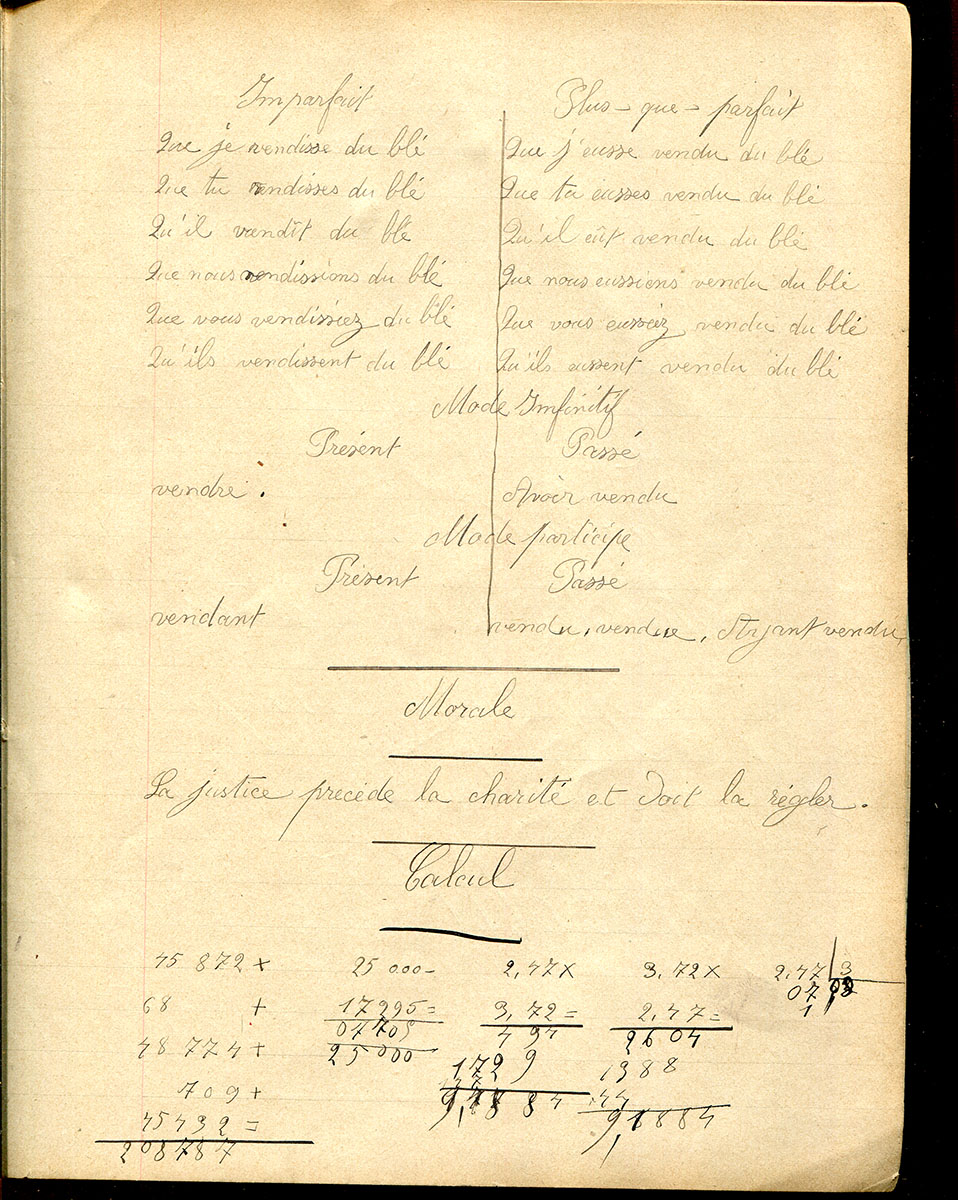 Imparfait
Que je vendisse du blé
Que tu vendisses du blé
Qu'il vendît du blé
Que nous vendissions du blé
Que vous vendissiez du blé
Qu'ils vendissent du blé
Plus-que-parfait
Que j'eusse vendu du blé
Que tu eusses vendu du blé
Qu'il eût vendu du blé
Que nous eussions vendu du blé
Que vous eussiez vendu du blé
Qu'ils eussent vendu du blé
Mode Infinitif
Présent Passé
vendre. Avoir vendu
Mode participe
Présent Passé
vendant vendu, vendue, Ayant vendu,
Morale
La justice précède la charité et doit la régler.
Calcul
45 872 +
68 +
48 774 +
709 +
45 432 =
208787
25 000 -
17295 =
07705
25 000
2,47 ×
3,72 =
494
172 9
3,72 ×
2,47 =
2604
1388
91884
2,47 3
07
1